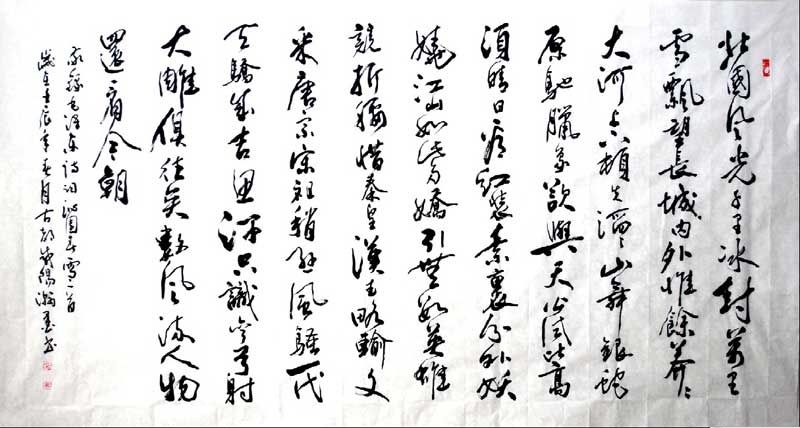 北國風光千里冰封萬里
雪飄望長城內外惟餘莽〻
大河上下頓失滔〻山舞銀蛇
原馳臘象欲與天公試比高
須晴日看紅裝素裹分外妖
嬈江山如此多嬌引無數英雄
競折腰惜秦皇漢武略輸文
采唐宗宋祖稍遜風騷一代
天驕成吉思汗只識彎弓射
大雕俱往矣數風流人物
還看今朝
錄毛澤東詩詞沁園春雪一首
歲在壬辰年月古都洛陽瀚墨書